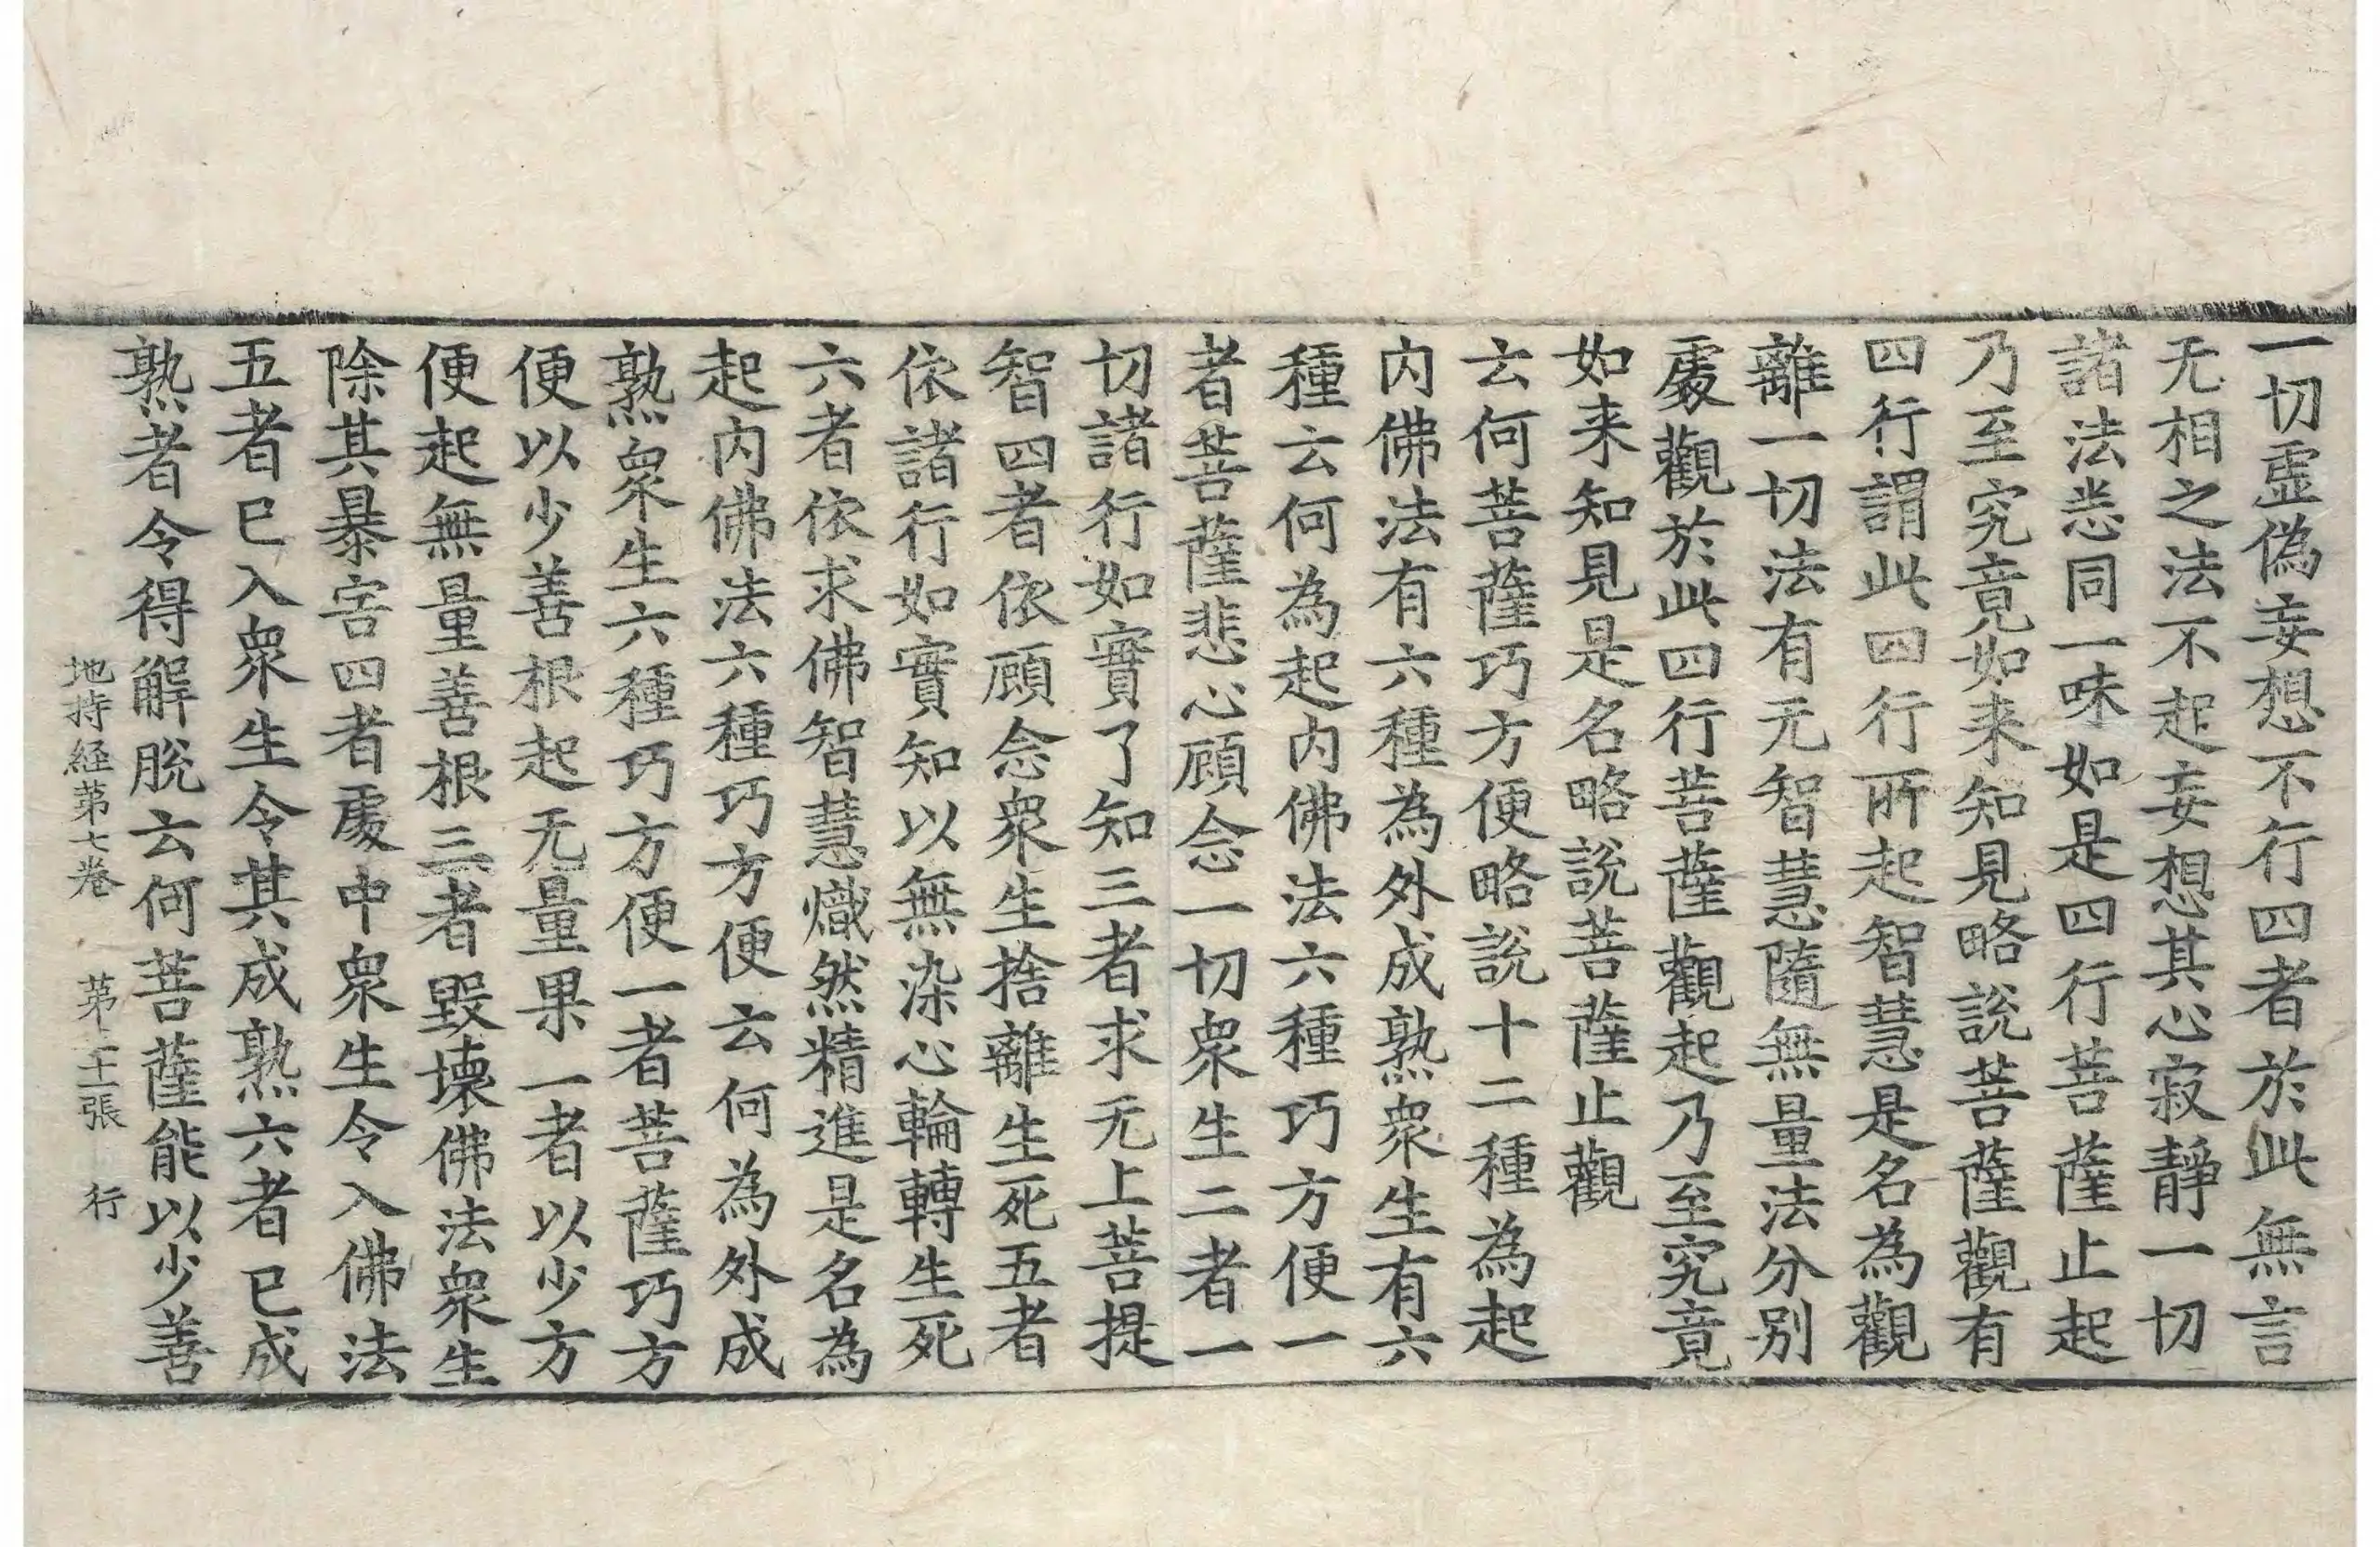 一切虛偽妄想不行四者於此無言
无相之法不起妄想其心寂靜一切
諸法悉同一味如是四行菩薩止起
乃至究竟如来知見略說菩薩觀有
四行謂此四行所起智慧是名為觀
離一切法有无智慧隨無量法分别
處觀於此四行菩薩觀起乃至究竟
如来知見是名略說菩薩止觀
云何菩薩巧方便略說十二種為起
内佛法有六種為外成熟衆生有六
種云何為起内佛法六種巧方便一
者菩薩悲心顧念一切衆生二者一
切諸行如實了知三者求无上菩提
智四者依顧念衆生捨離生死五者
依諸行如實知以無染心輪轉生死
六者依求佛智慧熾然精進是名為
起内佛法六種巧方便云何為外成
熟衆生六種巧方便一者菩薩巧方
便以少善根起无量果一者以少方
便起無量善根三者毀壞佛法衆生
除其暴害四者處中衆生令入佛法
五者已入衆生令其成熟六者已成
熟者令得解脫云何菩薩能以少善
地持経第七卷 第二十張 行